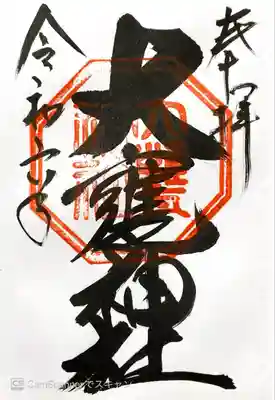 奉拝
大甕神社
令和
CS CamScannerでスキャン